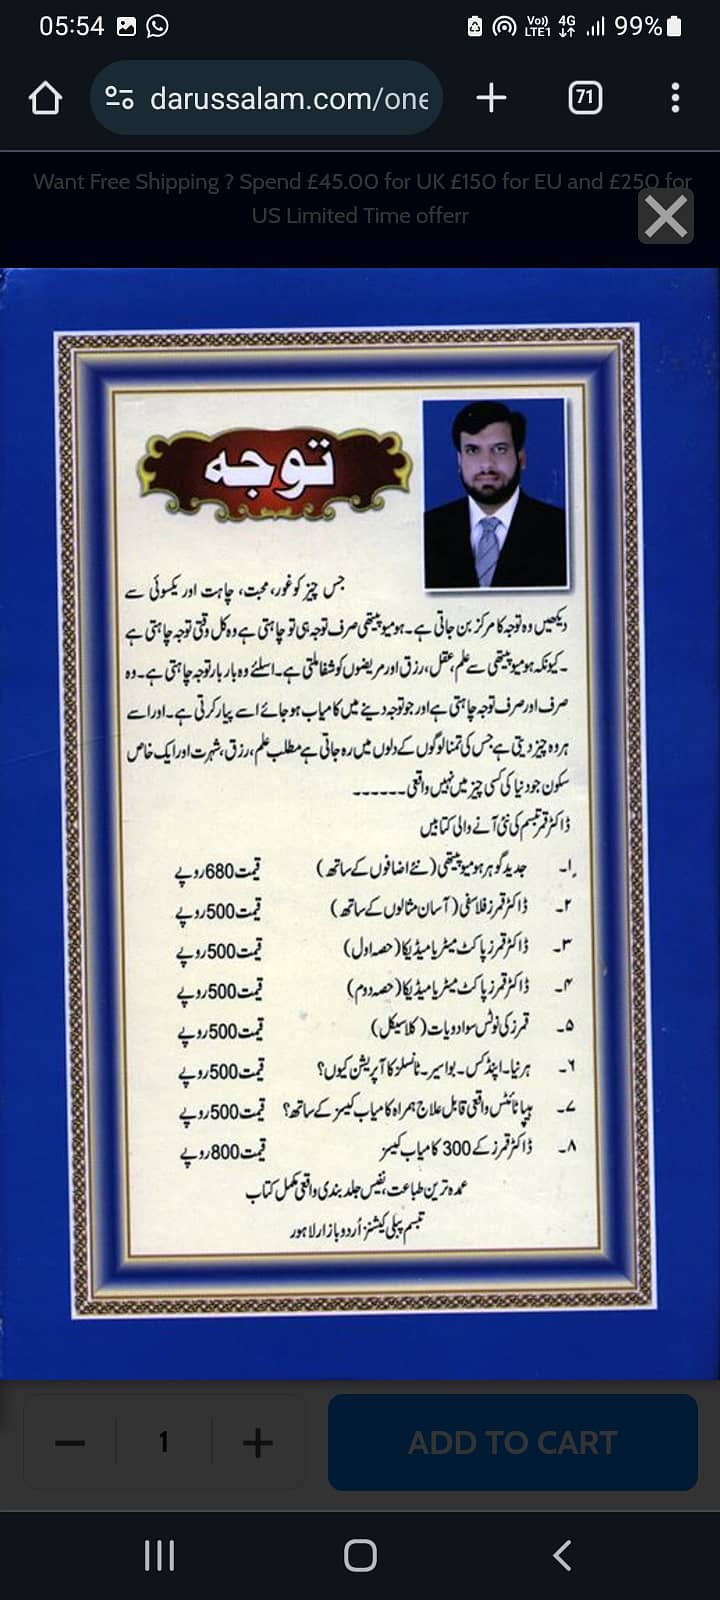 05:54
Vo)) LTE1 4G 99%
darussalam.com/one
71
Want Free Shipping ? Spend £45.00 for UK £150 for EU and £250 for
US Limited Time offerr
توجہ
جس چیز کو غور، محبت، چاہت اور یکسوئی سے
دیکھیں وہ توجہ کا مرکز بن جاتی ہے۔ ہومیوپیتھی صرف توجہ ہی تو چاہتی ہے وہ کل وقتی توجہ چاہتی ہے
۔ کیونکہ ہومیوپیتھی سے علم، عقل، رزق اور مریضوں کو شفا ملتی ہے۔ اسلئے وہ بار بار توجہ چاہتی ہے۔ وہ
صرف اور صرف توجہ چاہتی ہے اور جو توجہ دینے میں کامیاب ہو جائے اسے پیار کرتی ہے۔ اور اسے
ہر وہ چیز دیتی ہے جس کی تمنا لوگوں کے دلوں میں رہ جاتی ہے مطلب علم، رزق، شہرت اور ایک خاص
سکون جو دنیا کی کسی چیز میں نہیں واقعی۔۔۔۔۔۔
ڈاکٹر قمر تبسم کی نئی آنے والی کتابیں
۱۔ جدید گوہر ہومیوپیتھی (نئے اضافوں کے ساتھ) قیمت 680 روپے
۲۔ ڈاکٹر قمرز فلاسفی (آسان مثالوں کے ساتھ) قیمت 500 روپے
۳۔ ڈاکٹر قمرز پاکٹ میٹریا میڈیکا (حصہ اول) قیمت 500 روپے
۴۔ ڈاکٹر قمرز پاکٹ میٹریا میڈیکا (حصہ دوم) قیمت 500 روپے
۵۔ قمرز کی نوٹس سو ادویات (کلاسیکل) قیمت 500 روپے
۶۔ ہرنیا۔ اپنڈکس۔ بواسیر۔ ٹانسلز کا آپریشن کیوں؟ قیمت 500 روپے
۷۔ ہیپاٹائٹس واقعی قابل علاج ہمراہ کامیاب کیسز کے ساتھ؟ قیمت 500 روپے
۸۔ ڈاکٹر قمرز کے 300 کامیاب کیسز قیمت 800 روپے
عمدہ ترین طباعت، نفیس جلد بندی واقعی مکمل کتاب
تبسم پبلی کیشنز اُردو بازار لاہور
1
ADD TO CART